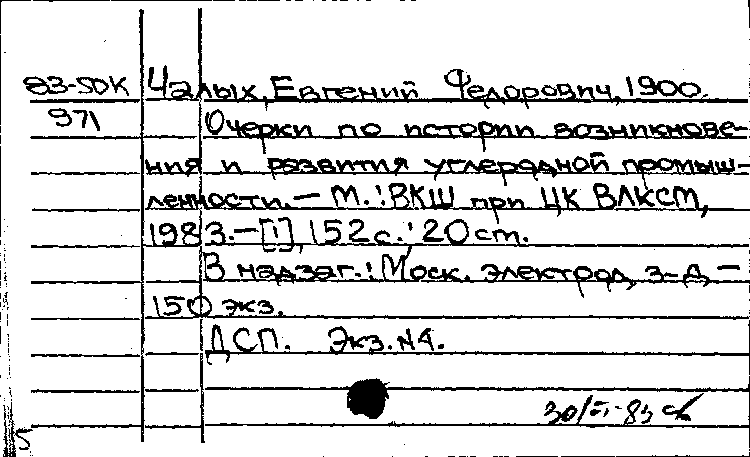 83-5DK Чалых, Евгений Федорович, 1900.
971 Очерки по истории возникнове-
ния и развития углеродной промыш-
ленности. — М.: ВКШ при ЦК ВЛКСМ,
1983. — [1], 152 с.; 20 cm.
В надзаг.: Моск. электрод. з-д, —
150 экз.
ДСП. Экз. №4.
30/VI-83
5